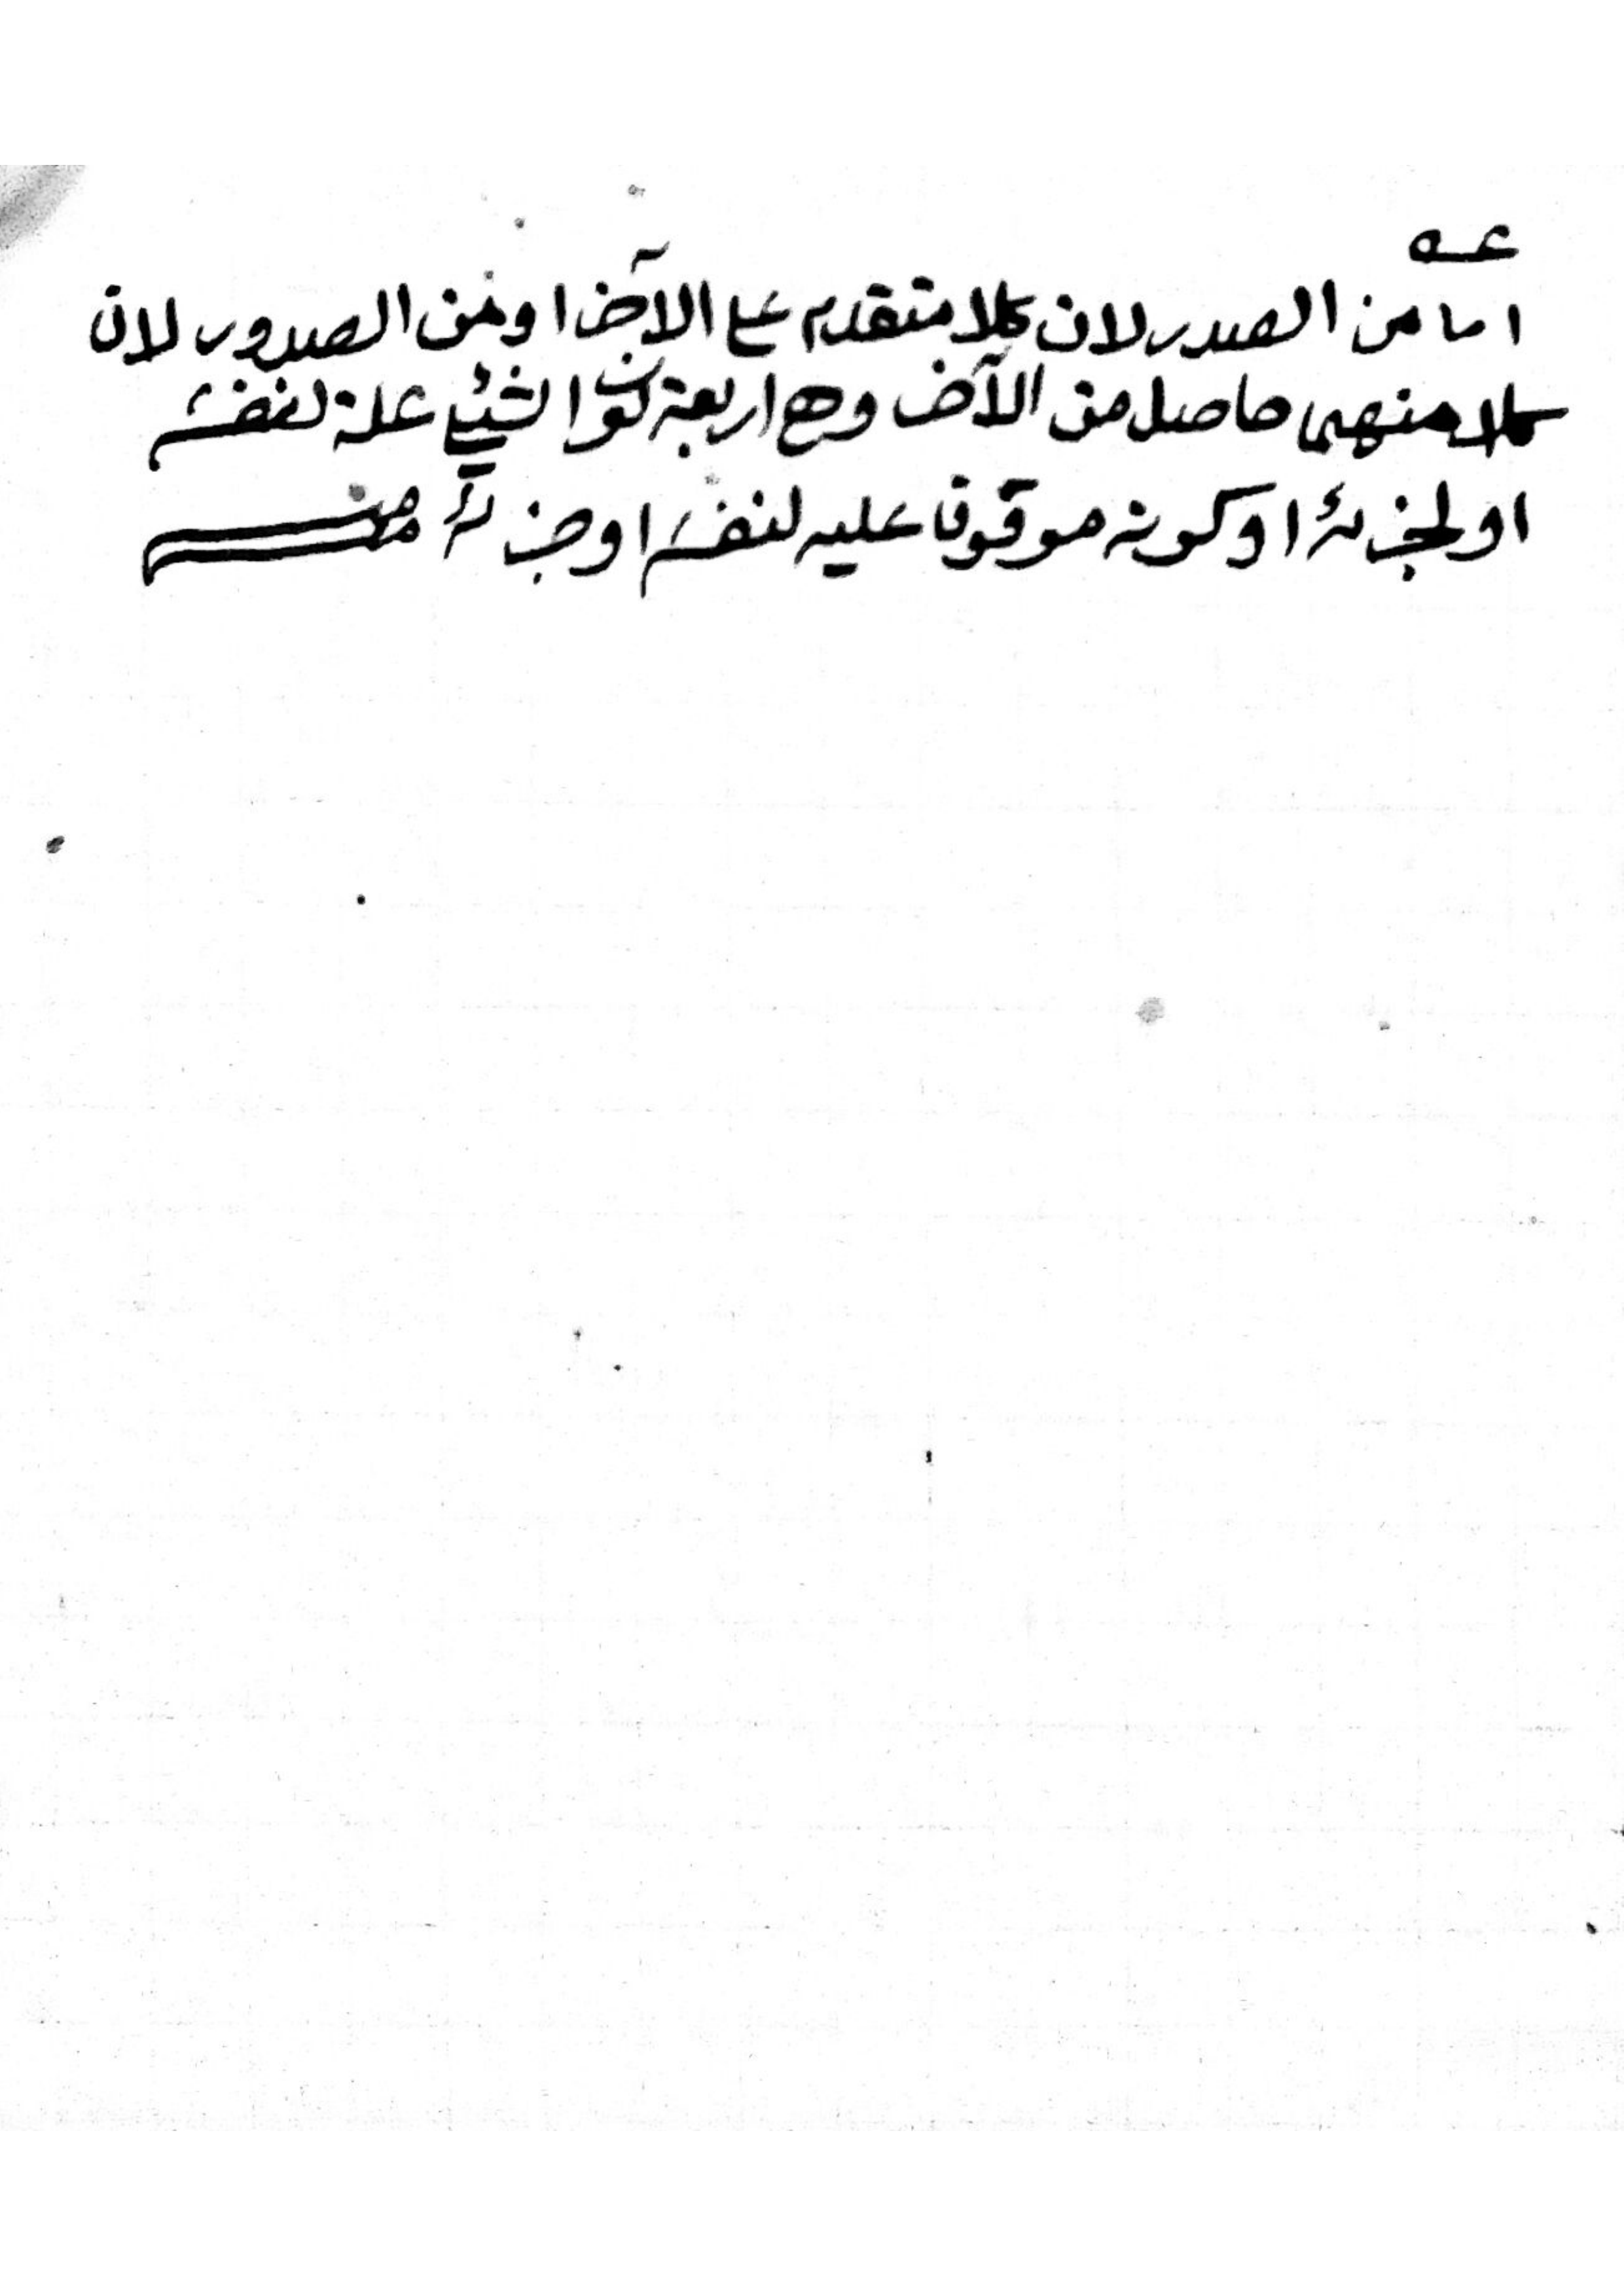 عـه
اما من الصدر لان كلا متقدم على الآخر او من الصدور لان
كلا منهما حاصل من الآخر وهى اربعة كون الشيئ علة لنفسه
او لجزئه او كونه موقوفا عليه لنفسه او جزئه منه